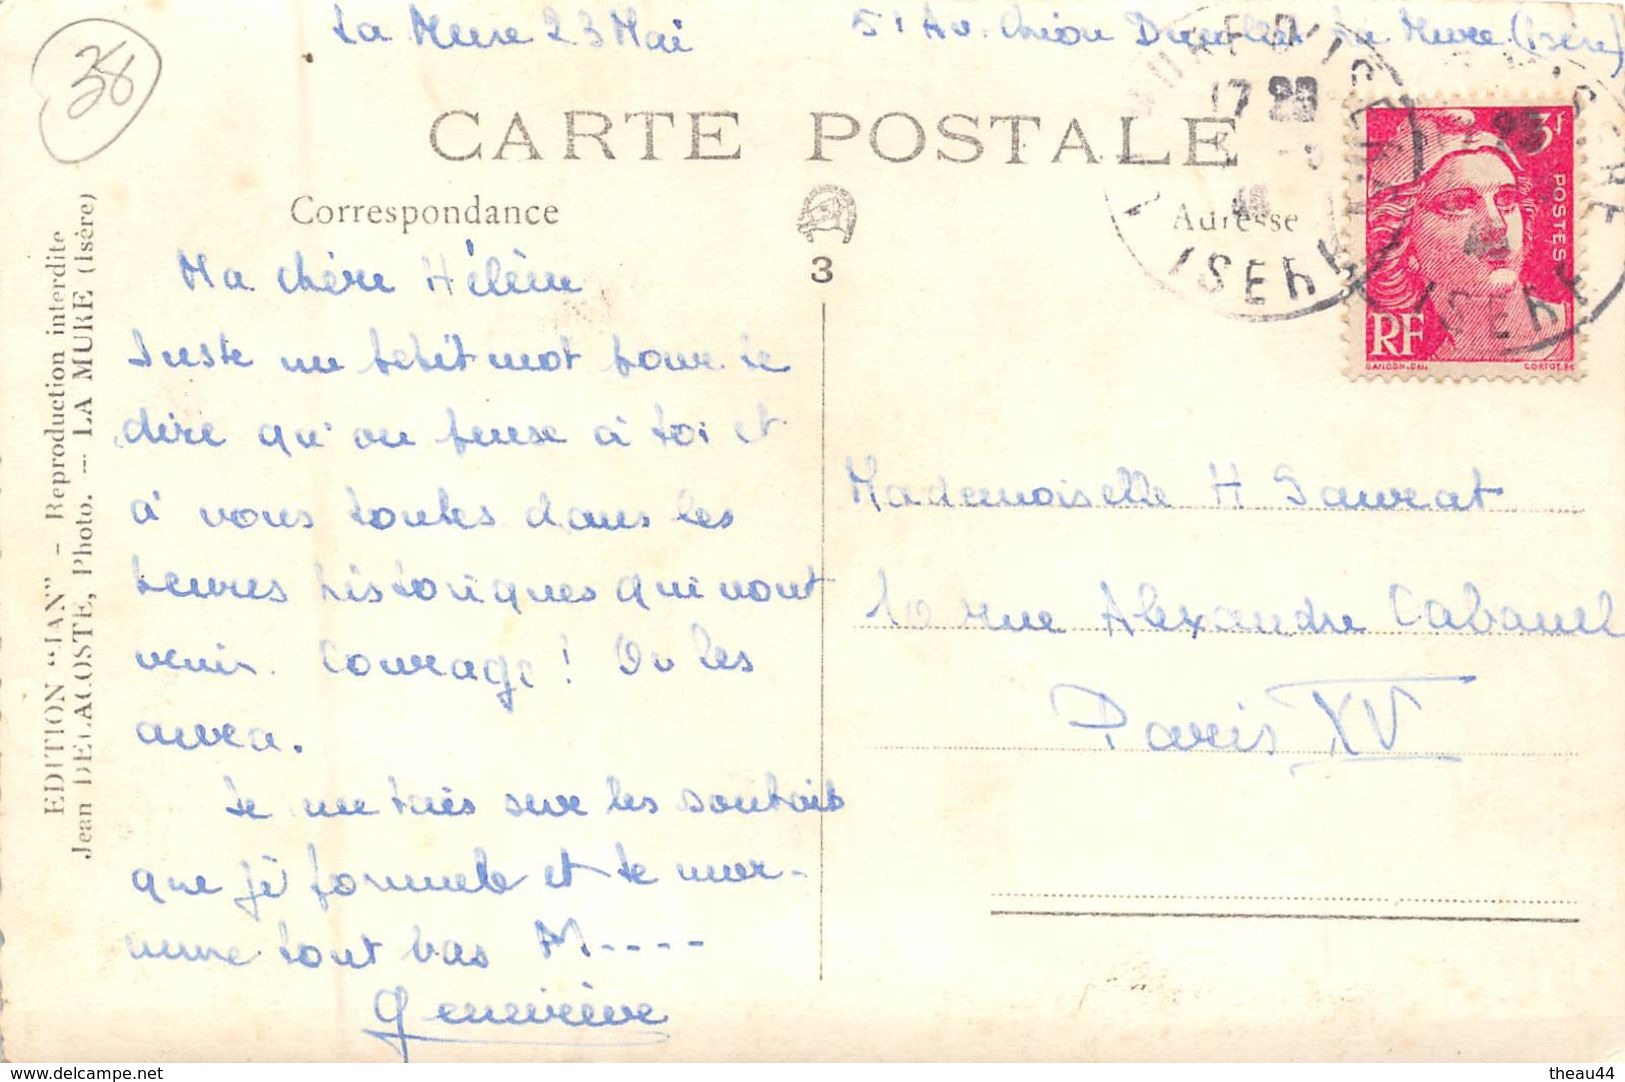 La Mure 23 Mai
51 Av. Chion Ducollet La Mure (Isère)
38
CARTE POSTALE
Correspondance
Adresse
3
17 23
ISERE
ISERE
3f
POSTES
RF
GANDON.DEL.
CORTOT.SC
EDITION "JAN" - Reproduction interdite
Jean DELACOSTE, Photo. -- LA MURE (Isère)
Ma chère Hélène
Juste un petit mot pour te
dire qu'on pense à toi et
à vous toutes dans les
heures historiques qui vont
venir. Courage! On les
aura.
Je me tais sur les souhaits
que je formule et te mur-
mure tout bas M----
Geneviève
Mademoiselle H Sauvat
10 rue Alexandre Cabanel
Paris XV
delcampe.net
theau44